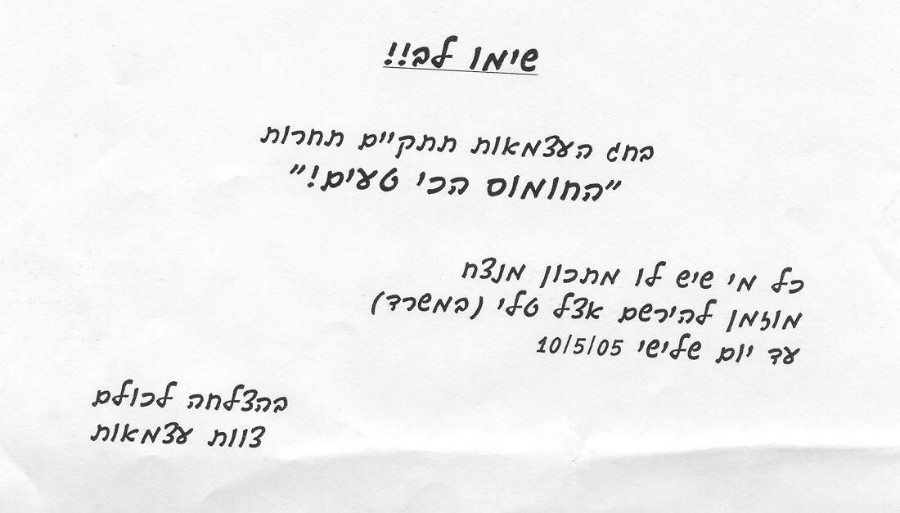 שימו לב!!
בחג העצמאות תתקיים תחרות
"החומוס הכי טעים!"
כל מי שיש לו מתכון מנצח
מוזמן להירשם אצל טלי (במשרד)
עד יום שלישי 10/5/05
בהצלחה לכולם
צוות עצמאות